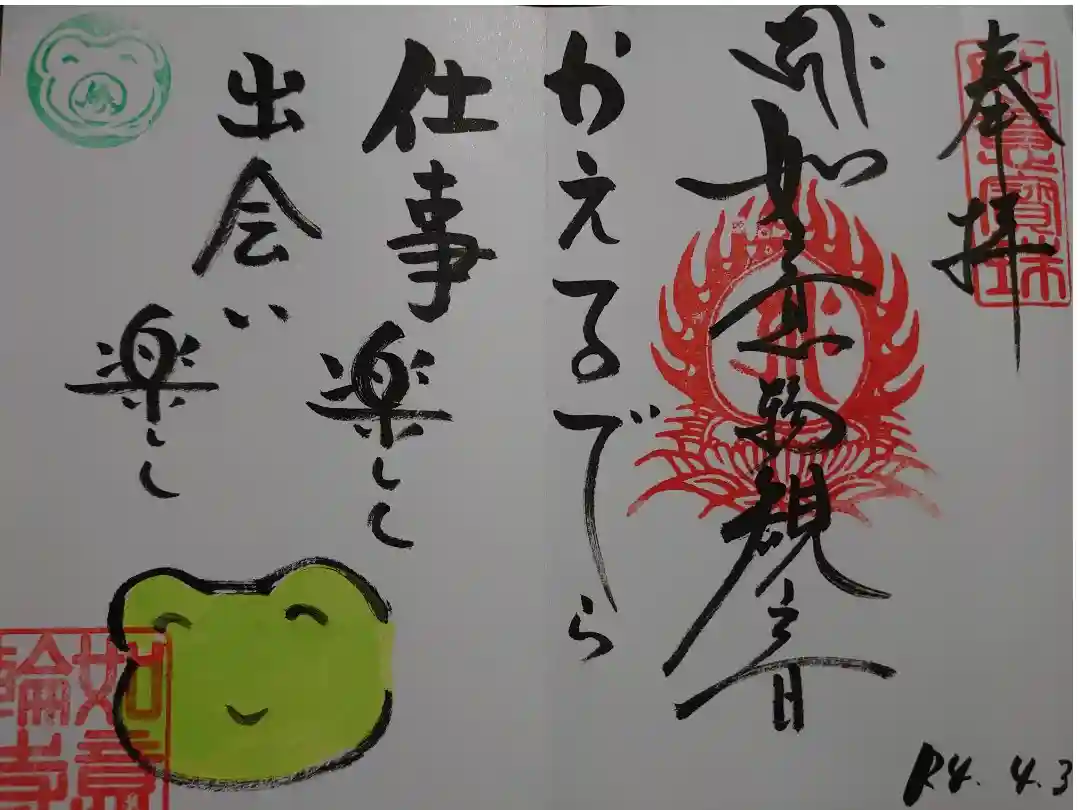 奉拝
如意宝珠
如意輪観音
かえるでら
仕事楽し
出会い楽し
如意
輪寺
R4.4.3